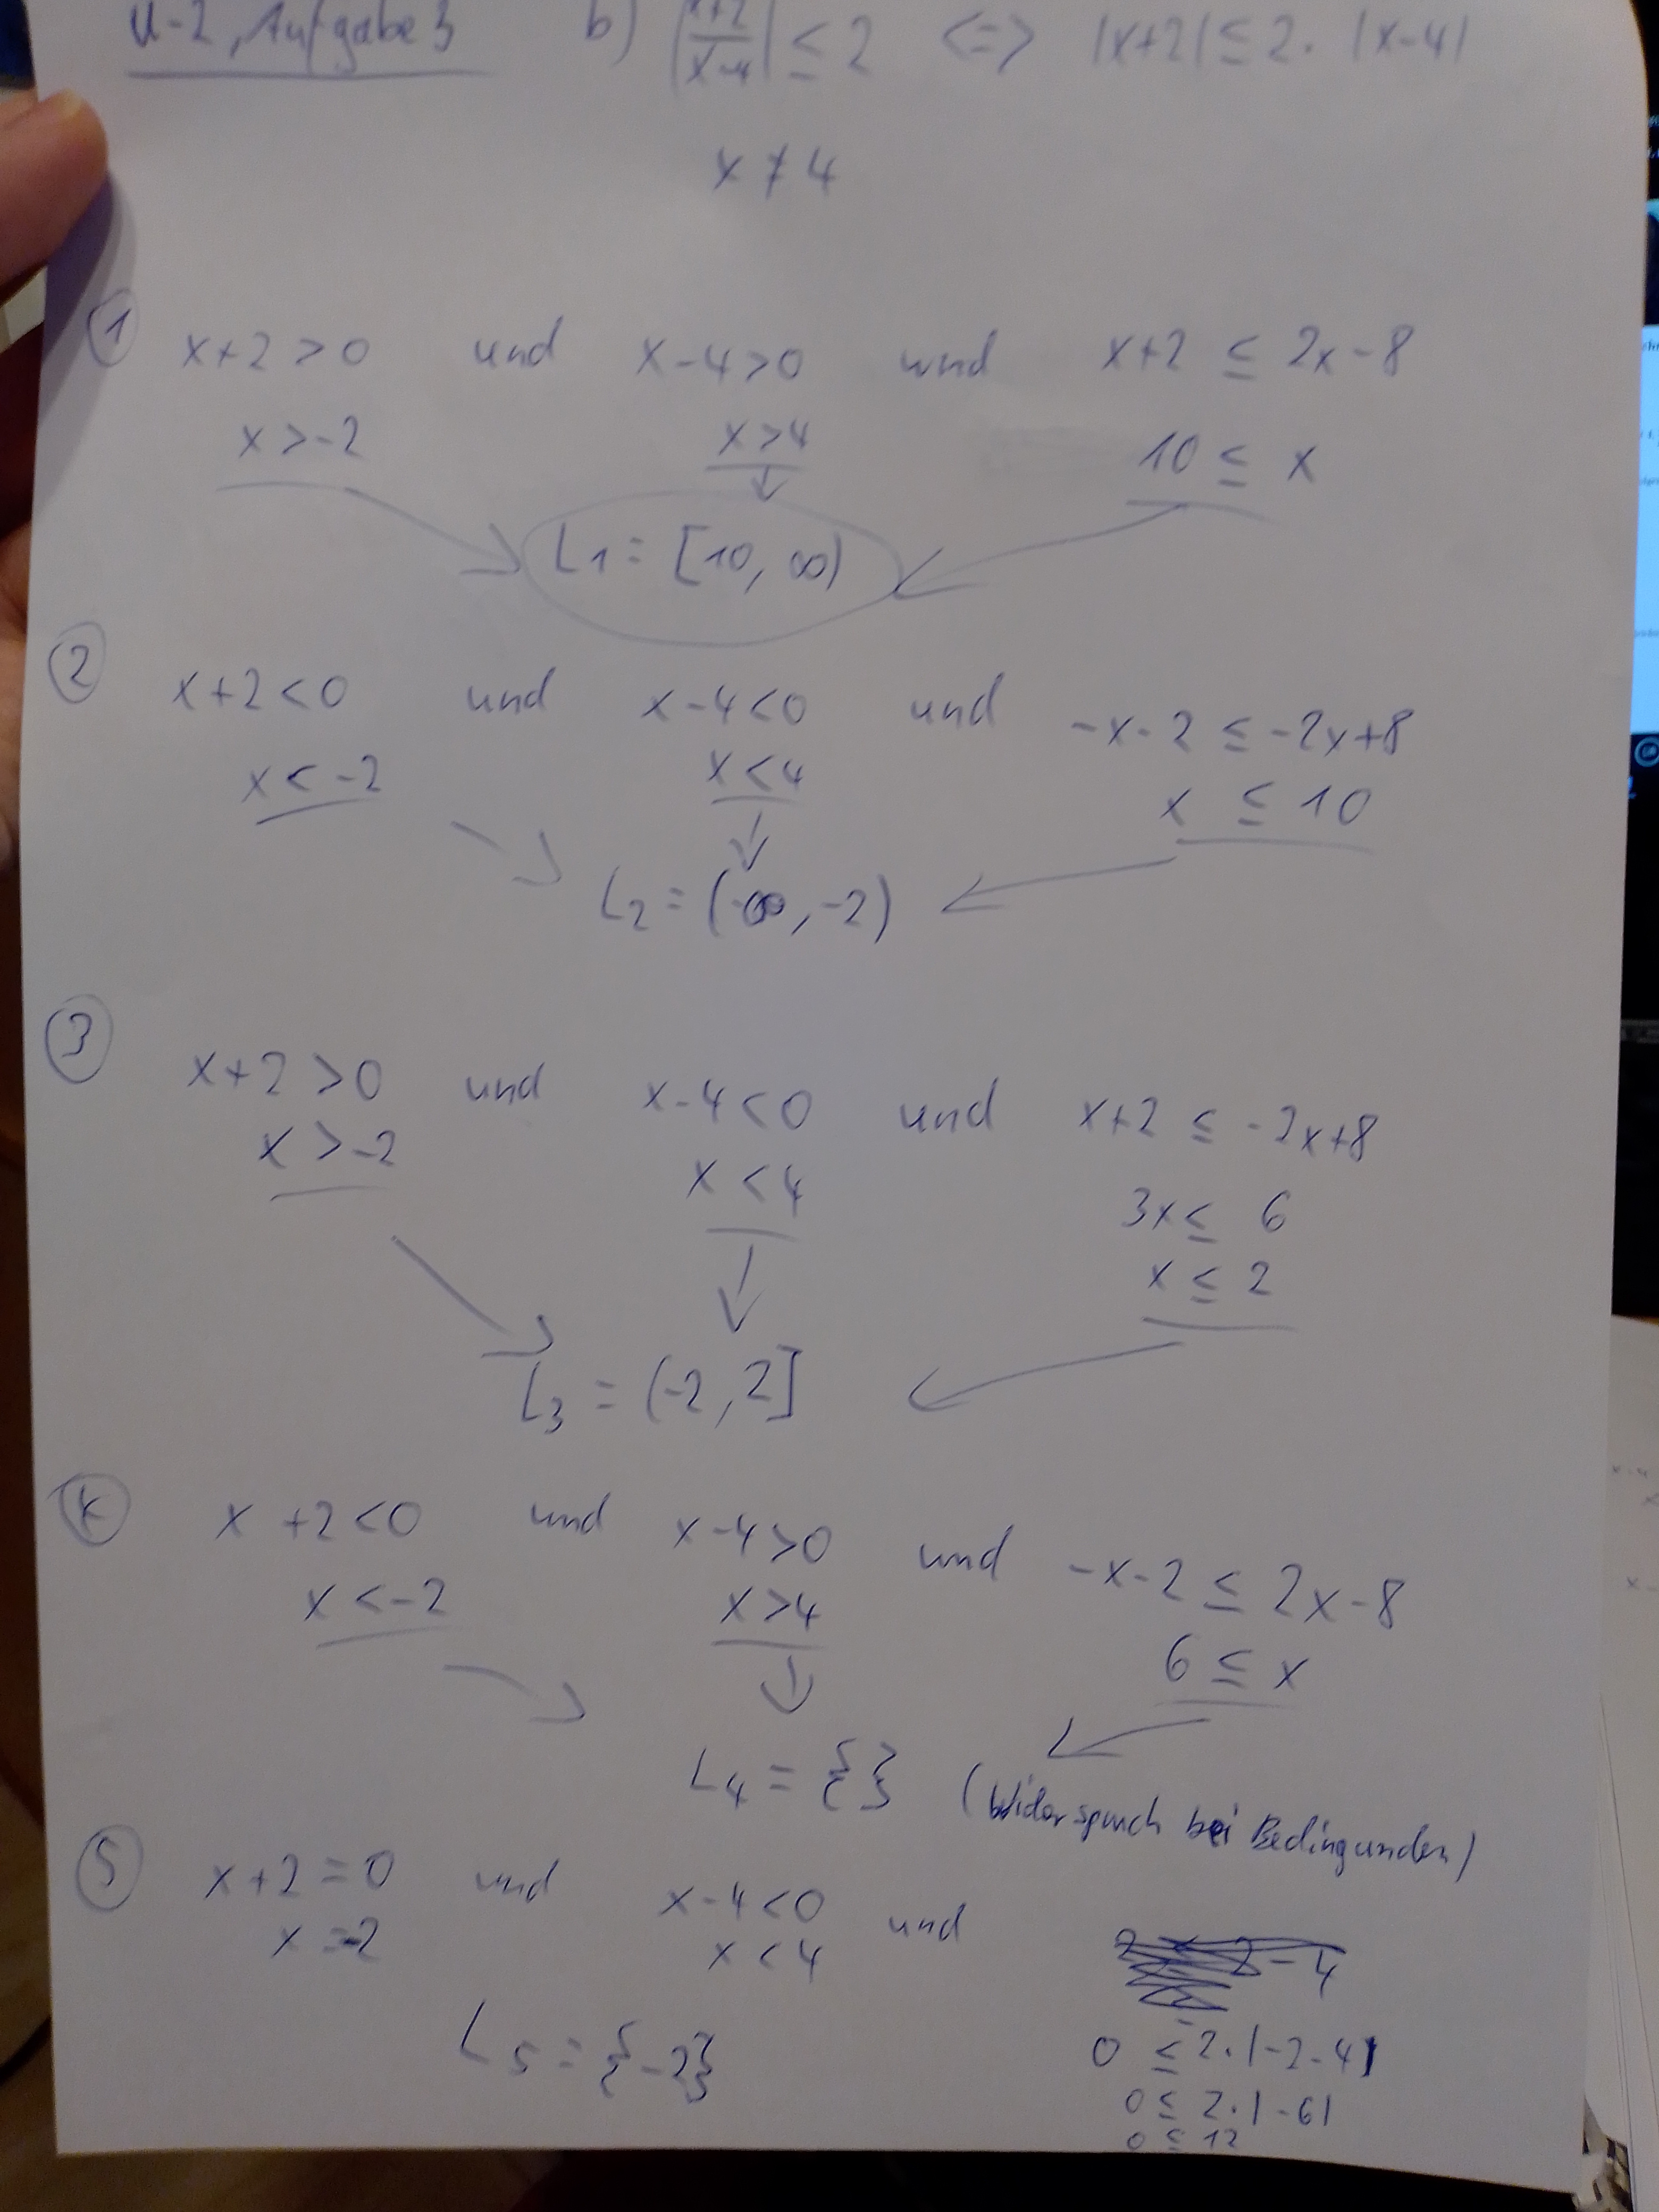 Ü-2, Aufgabe 3 b) |x+2/x-4| ≤ 2 <=> |x+2| ≤ 2 · |x-4|
x ≠ 4
① x+2 > 0 und x-4 > 0 und x+2 ≤ 2x-8
x > -2 x > 4 10 ≤ x
L1 = [10, ∞)
② x+2 < 0 und x-4 < 0 und -x-2 ≤ -2x+8
x < -2 x < 4 x ≤ 10
L2 = (-∞, -2)
③ x+2 > 0 und x-4 < 0 und x+2 ≤ -2x+8
x > -2 x < 4 3x ≤ 6
x ≤ 2
L3 = (-2, 2]
④ x+2 < 0 und x-4 > 0 und -x-2 ≤ 2x-8
x < -2 x > 4 6 ≤ x
L4 = {} (Widerspruch bei Bedingunden)
⑤ x+2 = 0 und x-4 < 0 und
x = -2 x < 4
L5 = {-2} 0 ≤ 2·|-2-4|
0 ≤ 2·|-6|
0 ≤ 12